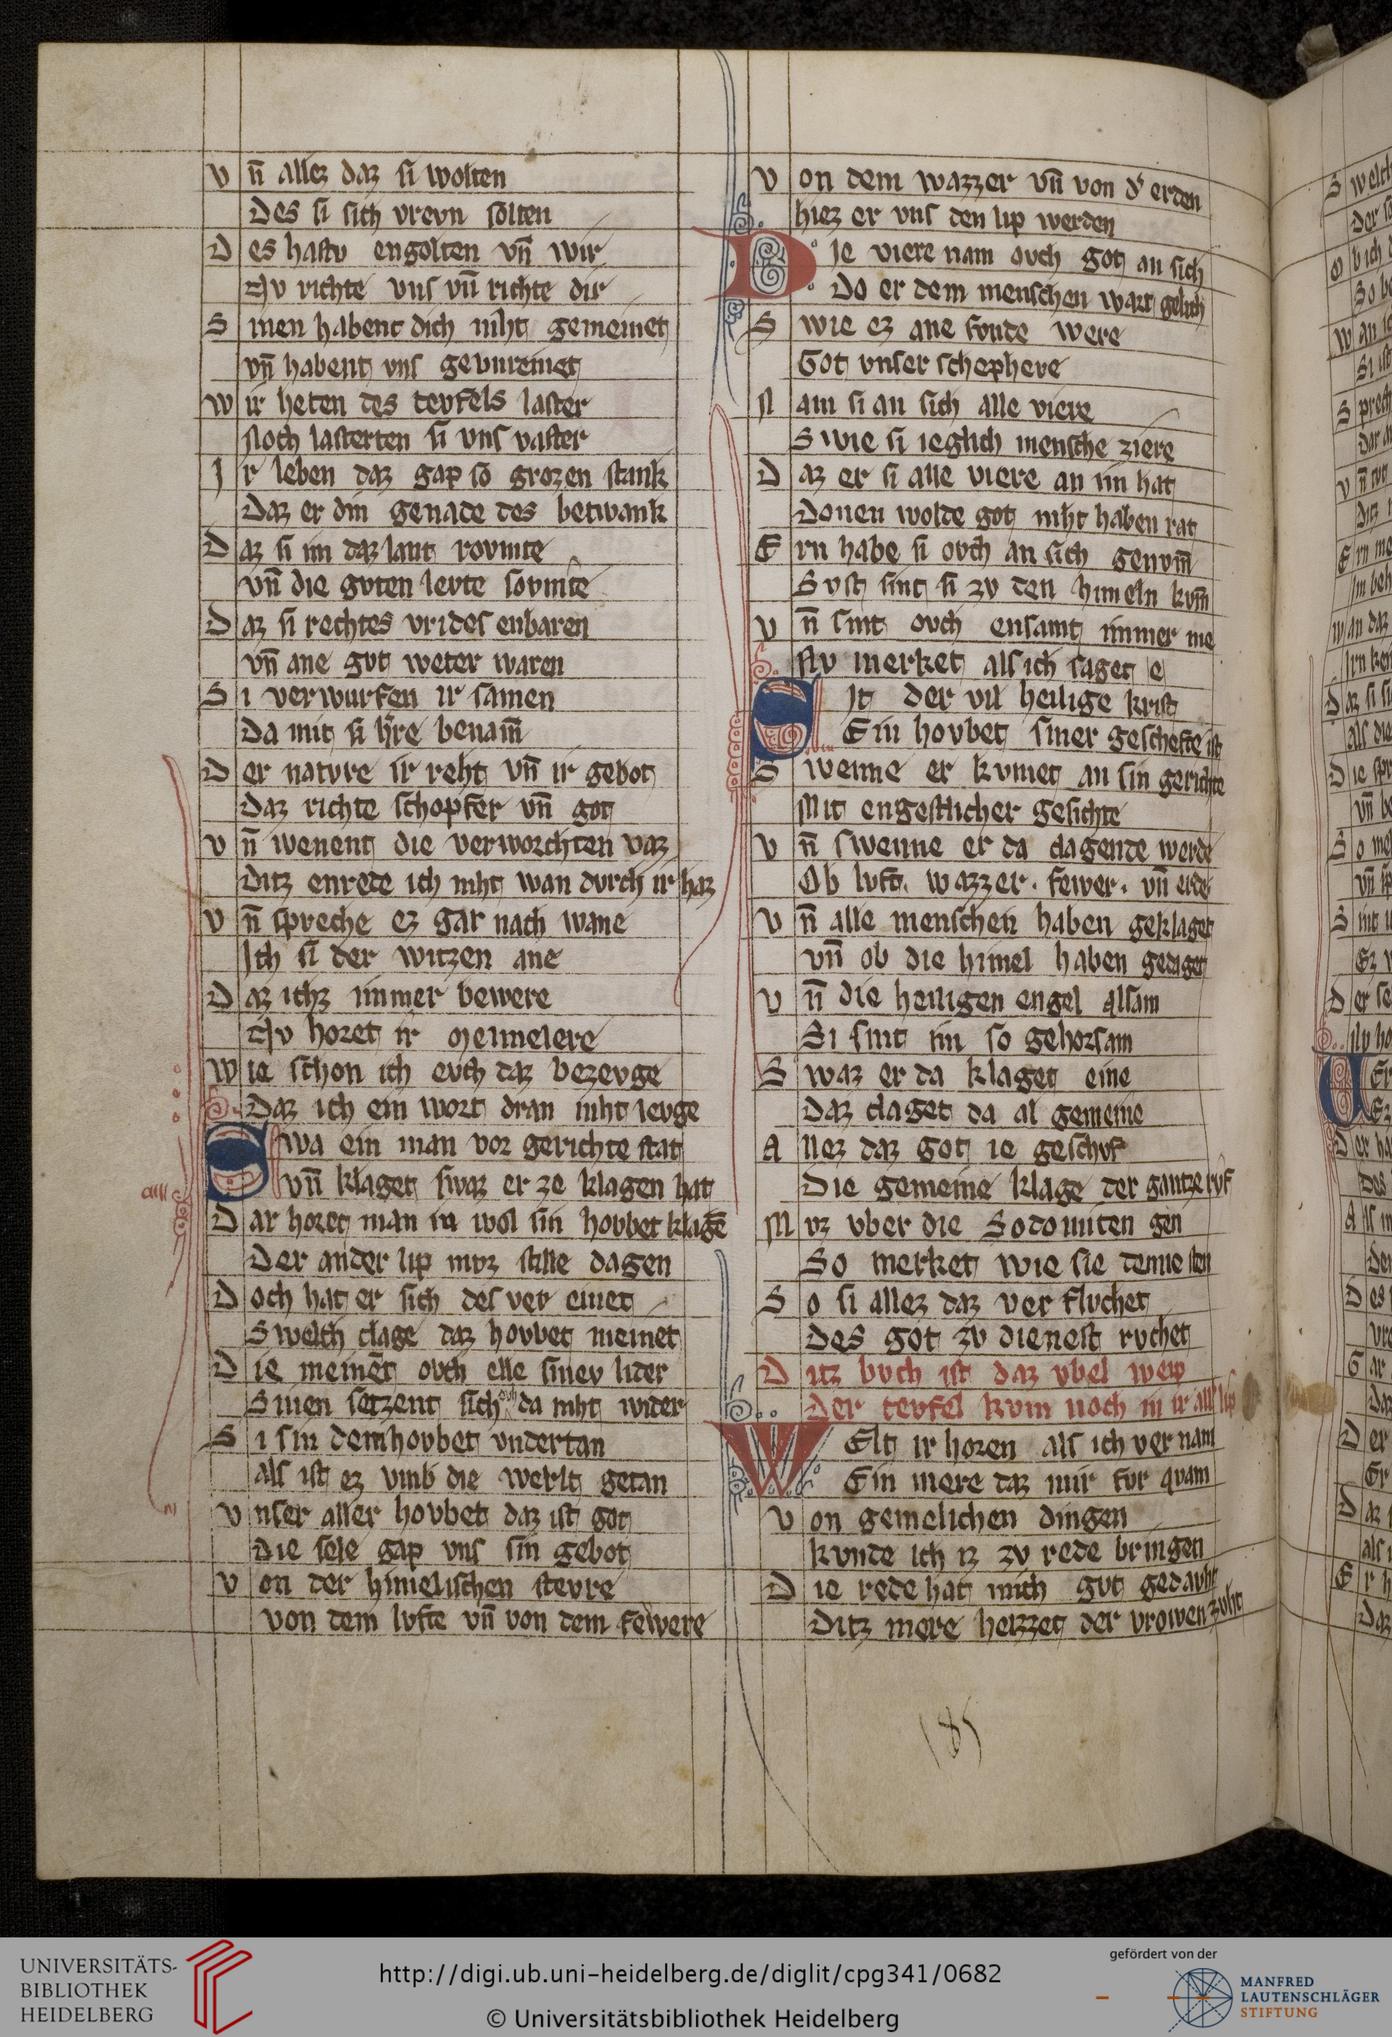 vn̄ allez daz si wolten
Des si sich vrevn solten
Des hastv engolten vn̄ wir
Nv richte vns vn̄ richte dir
Sinen habent dich niht gemeinet
vn̄ habent vns gevnreinet
Wir heten des tevfels laster
Noch lasterten si vns vaster
Ir leben daz gap so grozen stank
Daz er din genade des betwank
Daz si im daz lant rovmte
vn̄ die gvten levte sovmte
Daz si rechtes vrides enbaren
vn̄ ane gvt weter waren
Si verwurfen ir samen
Da mit si h're benam̄
Der natvre ir reht vn̄ ir gebot
Daz richte schopfer vn̄ got
vn̄ wenent die verworchten daz
Ditz enrede ich niht wan dvrch ir haz
vn̄ spreche ez gar nach wane
Ich si der witzen ane
Daz ichz immer bewere
Nv horet ir meinelere
Wie schon ich evch daz bezevge
Daz ich ein wort dran niht levge
Swa ein man vor gerichte stat
vn̄ klaget swaz er ze klagen hat
Dar horet man in wol sin hovbet klagē
Der ander lip mvz stille dagen
Doch hat er sich des ver einet
Swelch clage daz hovbet meinet
Die meinēt ovch elle sinev lider
Sinen setzent sich ovch da niht wider
Si sin dem hovbet vndertan
als ist ez vmb die werlt getan
vnser aller hovbet daz ist got
Die sele gap vns sin gebot
von der himelischen stevre
von dem lvfte vn̄ von dem fewere
von dem wazzer vn̄ von d' erden
hiez er vns den lip werden
Die viere nam ovch got an sich
Do er dem menschen wart gelich
Swie ez ane svnde were
Got vnser schephere
Nam si an sich alle viere
Swie si ieglich mensche ziere
Daz er si alle viere an im hat
Donen wolde got niht haben rat
Ern habe si ovch an sich genvm̄
Svst sint si zv den himeln kvm̄
vn̄ sint ovch ensamt immer me
Nv merket als ich saget e
Sit der vil heilige krist
Ein hovbet siner geschefte ist
Swenne er kvmet an sin gerichte
Mit engestlicher gesichte
vn̄ swenne er da clagende werde
Ob lvft. wazzer. fewer. vn̄ erde
vn̄ alle menschen haben geklaget
vn̄ ob die himel haben gedaget
vn̄ die heiligen engel alsam
Si sint im so gehorsam
Swaz er da klaget eine
Daz claget da al gemeine
Allez daz got ie geschvf
Die gemeine klage der gantze rvf
Mvz vber die Sodomiten gen
So merket wie sie denne sten
So si allez daz ver flvchet
Des got zv dienest rvchet
Ditz bvch ist daz vbel weip
Der tevfel kvm noch in ir all' lip
Welt ir horen als ich ver nam
Ein mere daz mir for qvam
von gemelichen dingen
kvnde ich iz zv rede bringen
Die rede hat mich gvt gedavht
Ditz mere heizzet der vrowen zvht
185
UNIVERSITÄTS-
BIBLIOTHEK
HEIDELBERG
http://digi.ub.uni-heidelberg.de/diglit/cpg341/0682
© Universitätsbibliothek Heidelberg
gefördert von der
MANFRED
LAUTENSCHLÄGER
STIFTUNG